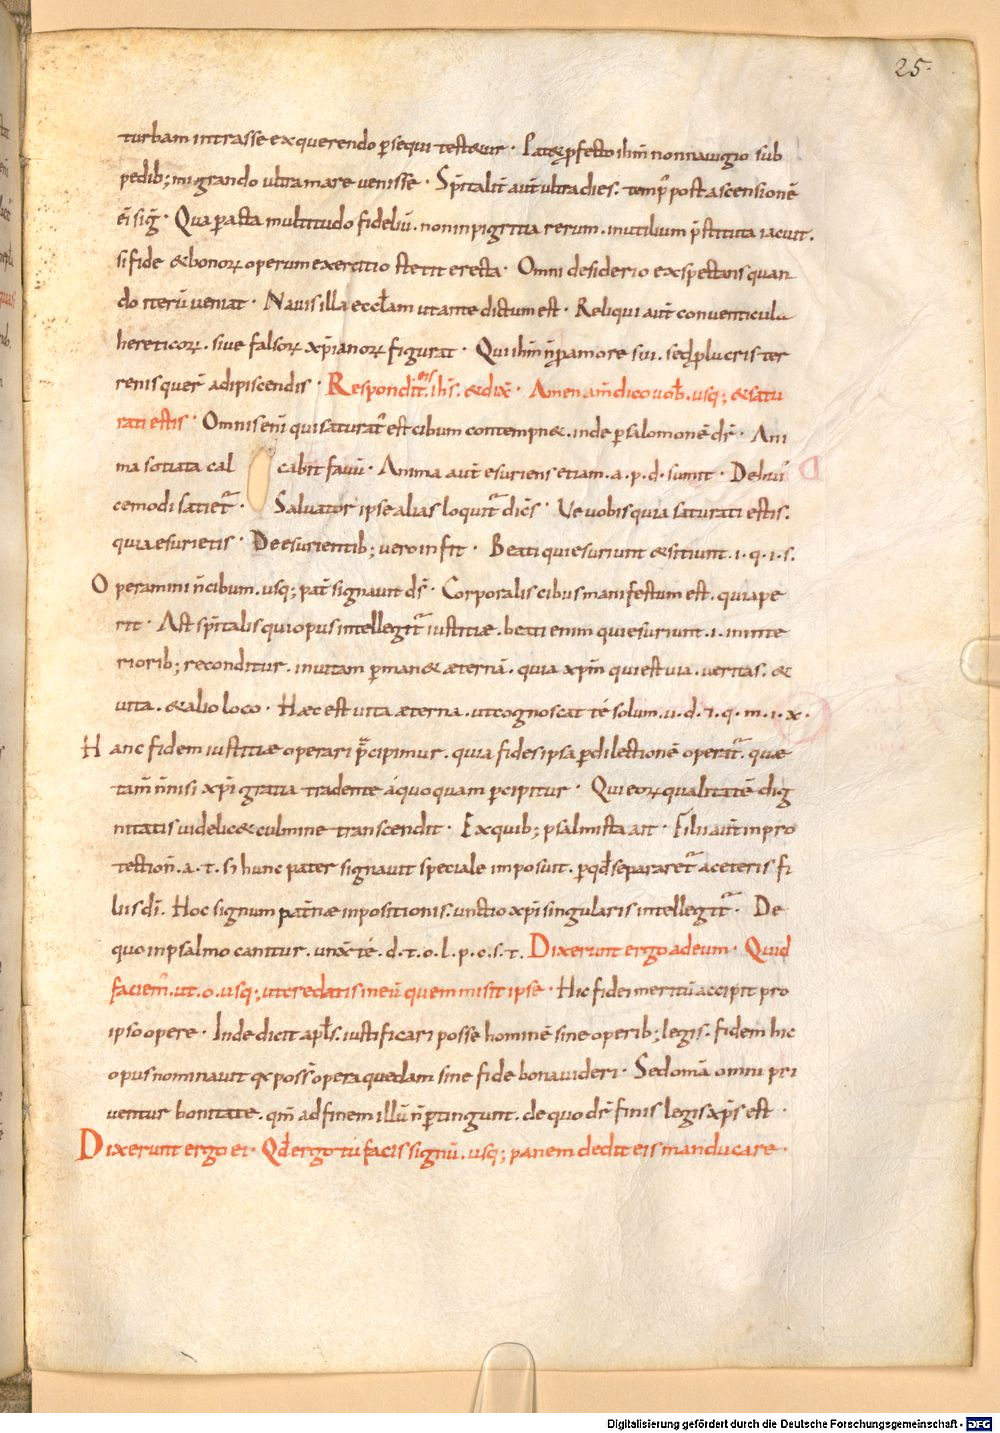 25.
turbam intrasse exquerendo ꝑsequi testetur · Patet ꝓfecto ihm̄ non nauigio sub
pedib; migrando ultra mare venisse · Sp̄italit̄ aut̄ ultra dies. temp̄ post ascensionē
ei sig̅. Qua ꝑacta multitudo fideliū. non inpigritia rerum. inutilium p̄stituta iacuit.
si fide & bonoꝝ operum exercitio stetit erecta · Omni desiderio exspectans quan
do iterū veniat · Nauis illa eccl̄am ut ante dictum est · Reliqui aut̄ conuenticula
hereticoꝝ. siue falsoꝝ xp̄ianoꝝ figurat · Qui ihm̄ n̄ ꝑ amore sui. sed ꝑ lucris ter
renis querē adipiscendis · Respondit eis ihs̄. & dix̄ · Amen am̄ dico uob̄. usq; & satu
rati estis · Omnis eni qui saturat̄ est cibum contempn&. inde ꝑ salomonē dr̄ · Ani
ma sotiata cal cabit fauū · Anima aut̄ esuriens etiam. a. p. d. sumit · De huī
cemodi satiet̄ · Saluator ipse alias loquit̄ dic̄s · Ue uobis quia saturati estis.
quia esurietis · De esurientib; uero infit · Beati qui esuriunt & sitiunt. i. q. i. s.
Operamini n̄ cibum. usq; pat̄ signauit ds̄ · Corporalis cibus manifestum est. quia pe
rit · Ast sp̄italis qui opus intellegit̄ iustitiæ. beati enim qui esuriunt. i. in inte
riorib; reconditur. in uitam ꝑman& æternā. quia xp̄m qui est uia. ueritas. &
uita. & alio loco · Hæc est uita æterna. ut cognoscat té solum. u. d. 7. q. m. i. x.
Hanc fidem iustitiæ operari p̄cipimur. quia fides ipsa ꝑ dilectionē operit̄. quæ
tam̄ n̄ nisi xp̄i gratia tradente á quoquam ꝑcipitur · Qui eoꝝ qualitatē dig
nitatis uidelic& culmine transcendit · Ex quib; psalmista ait · Filii aut̄ in pro
tection̄. a. t. s) hunc pater signauit speciale imposuit. ꝑ qd̄ separaret̄ a ceteris fi
liis di. Hoc signum pat̄næ inpositionis. unctio xp̄i singularis intellegit̄ · De
quo in psalmo canitur. unx̄ té. d. t. o. l. p. c. s. t. Dixerunt ergo ad eum · Quid
faciem̄. ut. o. usq; ut credatis in eū quem misit ipse · Hic fidei meritū accipit pro
ipso opere · Inde dicit apl̄s. iustificari posse hominē sine operib; legis. fidem hic
opus nominauit qꝛ poss̄ opera quedam sine fide bona uideri · Sed omā omni pri
uentur bonitate. qm̄ ad finem illū n̄ ꝑtingunt. de quo dr̄ finis legis xp̄s est ·
Dixerunt ergo ei · Qd̄ ergo tu facis signū. usq; panem dedit eis manducare ·
Digitalisierung gefördert durch die Deutsche Forschungsgemeinschaft - DFG